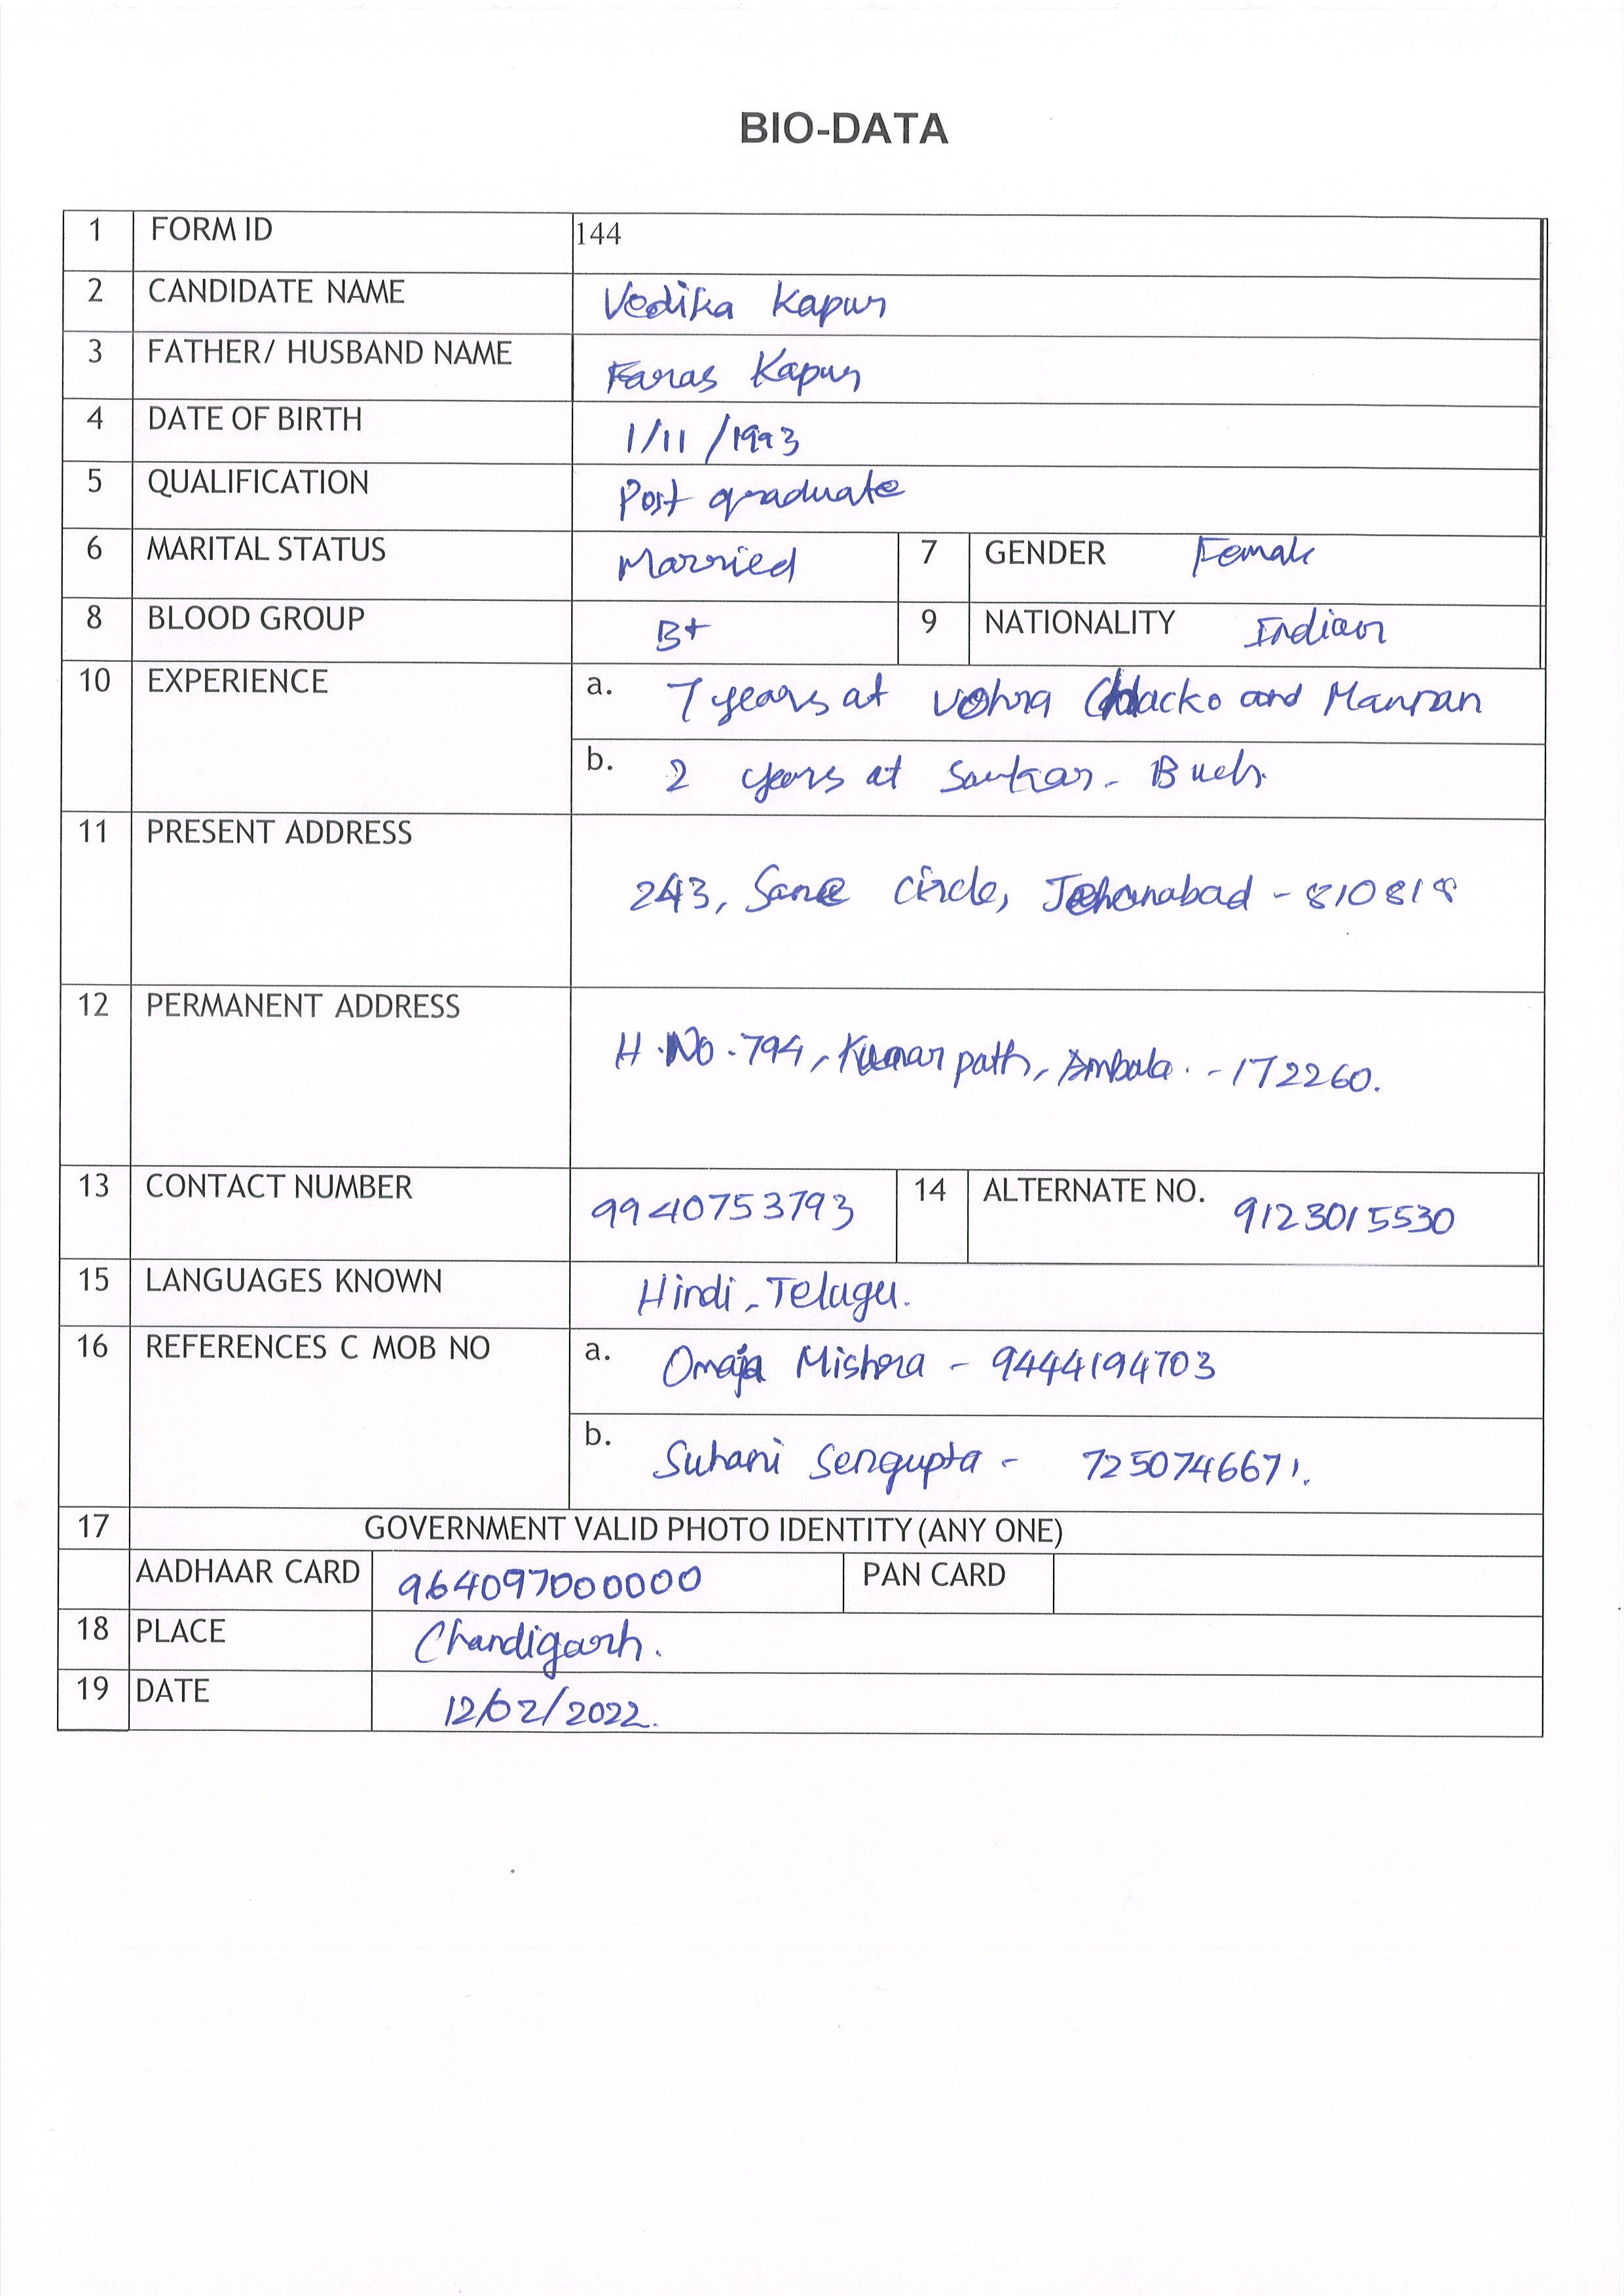 BIO-DATA
1 FORM ID 144
2 CANDIDATE NAME Vedika Kapur
3 FATHER/ HUSBAND NAME Faras Kapur
4 DATE OF BIRTH 1/11/1993
5 QUALIFICATION Post graduate
6 MARITAL STATUS Married 7 GENDER Female
8 BLOOD GROUP B+ 9 NATIONALITY Indian
10 EXPERIENCE a. 7 years at Vohra Chacko and Mannan
b. 2 years at Sarkar - Buch
11 PRESENT ADDRESS
243, Sane Circle, Jehanabad - 810818
12 PERMANENT ADDRESS
H.No.794, Kumar path, Ambala. - 172260.
13 CONTACT NUMBER 9940753793 14 ALTERNATE NO. 9123015530
15 LANGUAGES KNOWN Hindi, Telugu.
16 REFERENCES C MOB NO a. Omaja Mishra - 9444194703
b. Suhani Sengupta - 7250746671.
17 GOVERNMENT VALID PHOTO IDENTITY (ANY ONE)
AADHAAR CARD 964097000000 PAN CARD
18 PLACE Chandigarh.
19 DATE 12/02/2022.